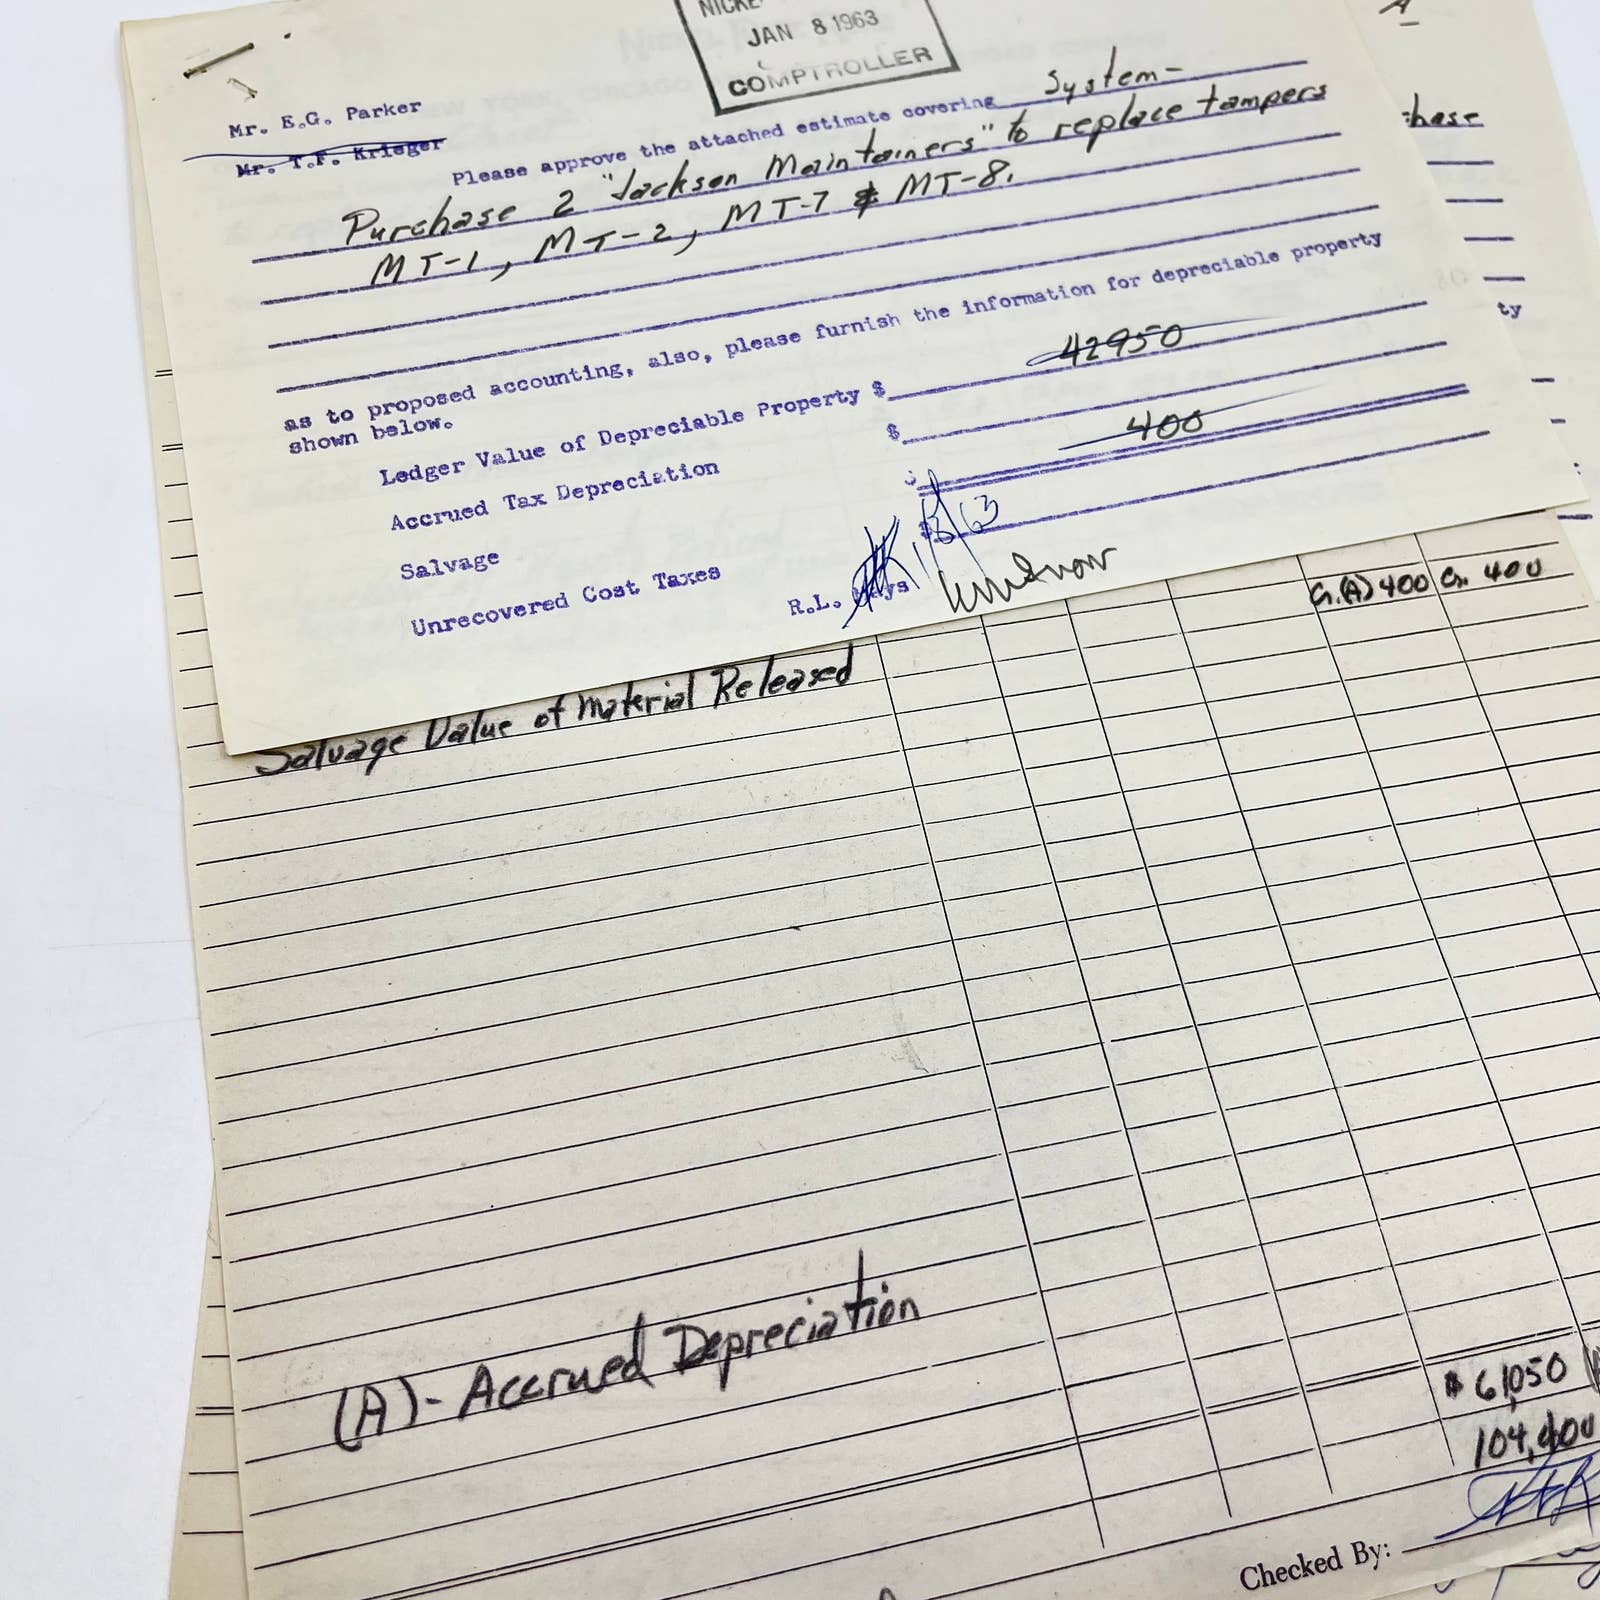 JAN 8 1963
COMPTROLLER
Mr. E.G. Parker
Mr. T.F. Krieger
Please approve the attached estimate covering System-
Purchase 2 "Jackson Maintainers" to replace tampers
MT-1, MT-2, MT-7 & MT-8.
as to proposed accounting, also, please furnish the information for depreciable property
shown below.
Ledger Value of Depreciable Property $ 42950
Accrued Tax Depreciation $
Salvage 400
Unrecovered Cost Taxes
R.L.
Cr. (A) 400 Cr. 400
Salvage Value of Material Released
(A)- Accrued Depreciation
$ 61,050
104,400
Checked By: